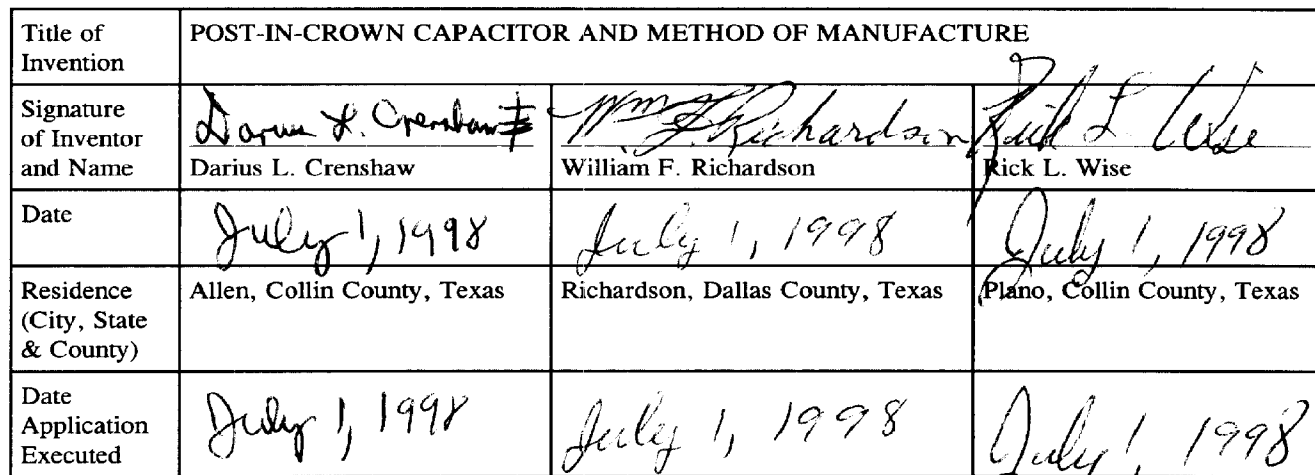 Title of
Invention
POST-IN-CROWN CAPACITOR AND METHOD OF MANUFACTURE
Signature
of Inventor
and Name
Darius L. Crenshaw
Wm F Richardson
Rick L. Wise
Darius L. Crenshaw
William F. Richardson
Rick L. Wise
Date
July 1, 1998
July 1, 1998
July 1, 1998
Residence
(City, State
& County)
Allen, Collin County, Texas
Richardson, Dallas County, Texas
Plano, Collin County, Texas
Date
Application
Executed
July 1, 1998
July 1, 1998
July 1, 1998